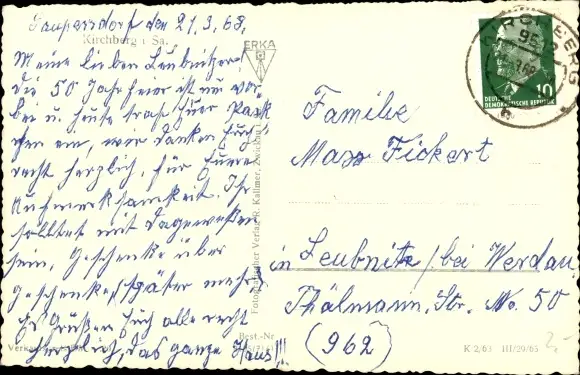 Saupersdorf den 21.3.68.
Kirchberg i. Sa.
Meine lieben Leubnitzer
die 50 Jahrfeier ist nun vor-
bei u. heute traf Euer Päck
chen ein, wir danken Euch
recht herzlich, für Eure
Aufmerksamkeit. Ihr
solltet mit dagewesen
sein, Geschenke über
Geschenke, später mehr
Es grüßen Euch alle recht
herzlich, das ganze Haus!!!
ERKA
Fotografischer Verlag R. Kallmer, Zwickau
Best.-Nr.
KIRCHBERG
DEUTSCHE
DEMOKRATISCHE REPUBLIK
10
Familie
Max Fickert
in Leubnitz/bei Werdau
Thälmann, Str. No. 50
(962)
K 2/63 III/29/65
2,-